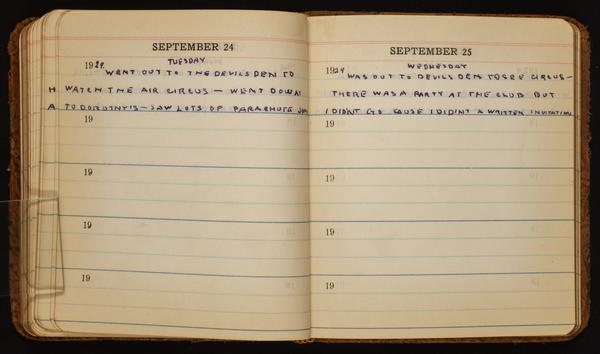 SEPTEMBER 24
1929. TUESDAY
WENT OUT TO THE DEVILS DEN TO
H WATCH THE AIR CIRCUS — WENT DOWN
A TO DOROTHY'S — SAW LOTS OF PARACHUTE
19
19
19
19
SEPTEMBER 25
1929 WEDNESDAY
WAS OUT TO DEVILS DEN TO SEE CIRCUS —
THERE WAS A PARTY AT THE CLUB BUT
I DIDN'T GO CAUSE I DIDINT A WRITTEN INVITATION
19
19
19
19